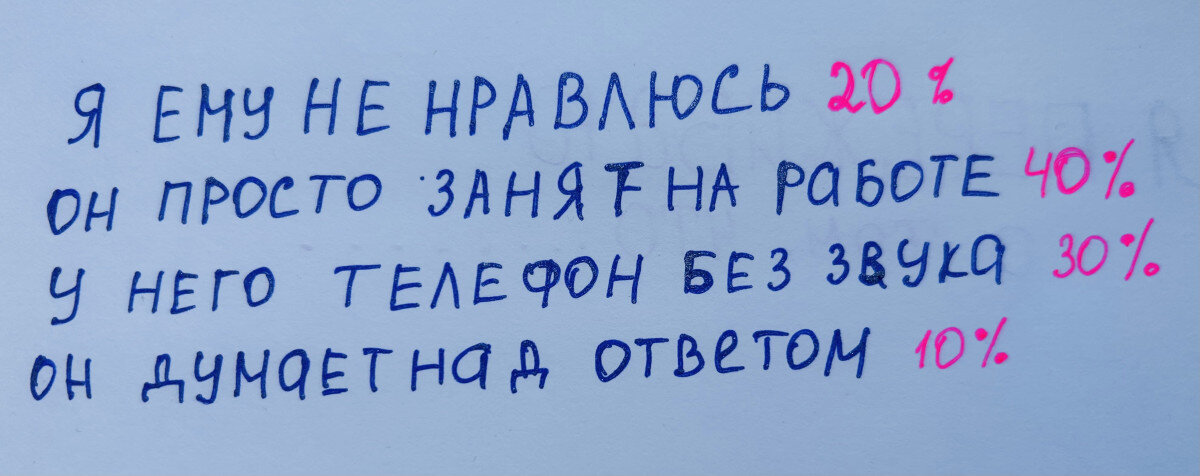 Я ЕМУ НЕ НРАВЛЮСЬ 20 %
ОН ПРОСТО ЗАНЯТ НА РАБОТЕ 40%
У НЕГО ТЕЛЕФОН БЕЗ ЗВУКА 30%
ОН ДУМАЕТ НАД ОТВЕТОМ 10%